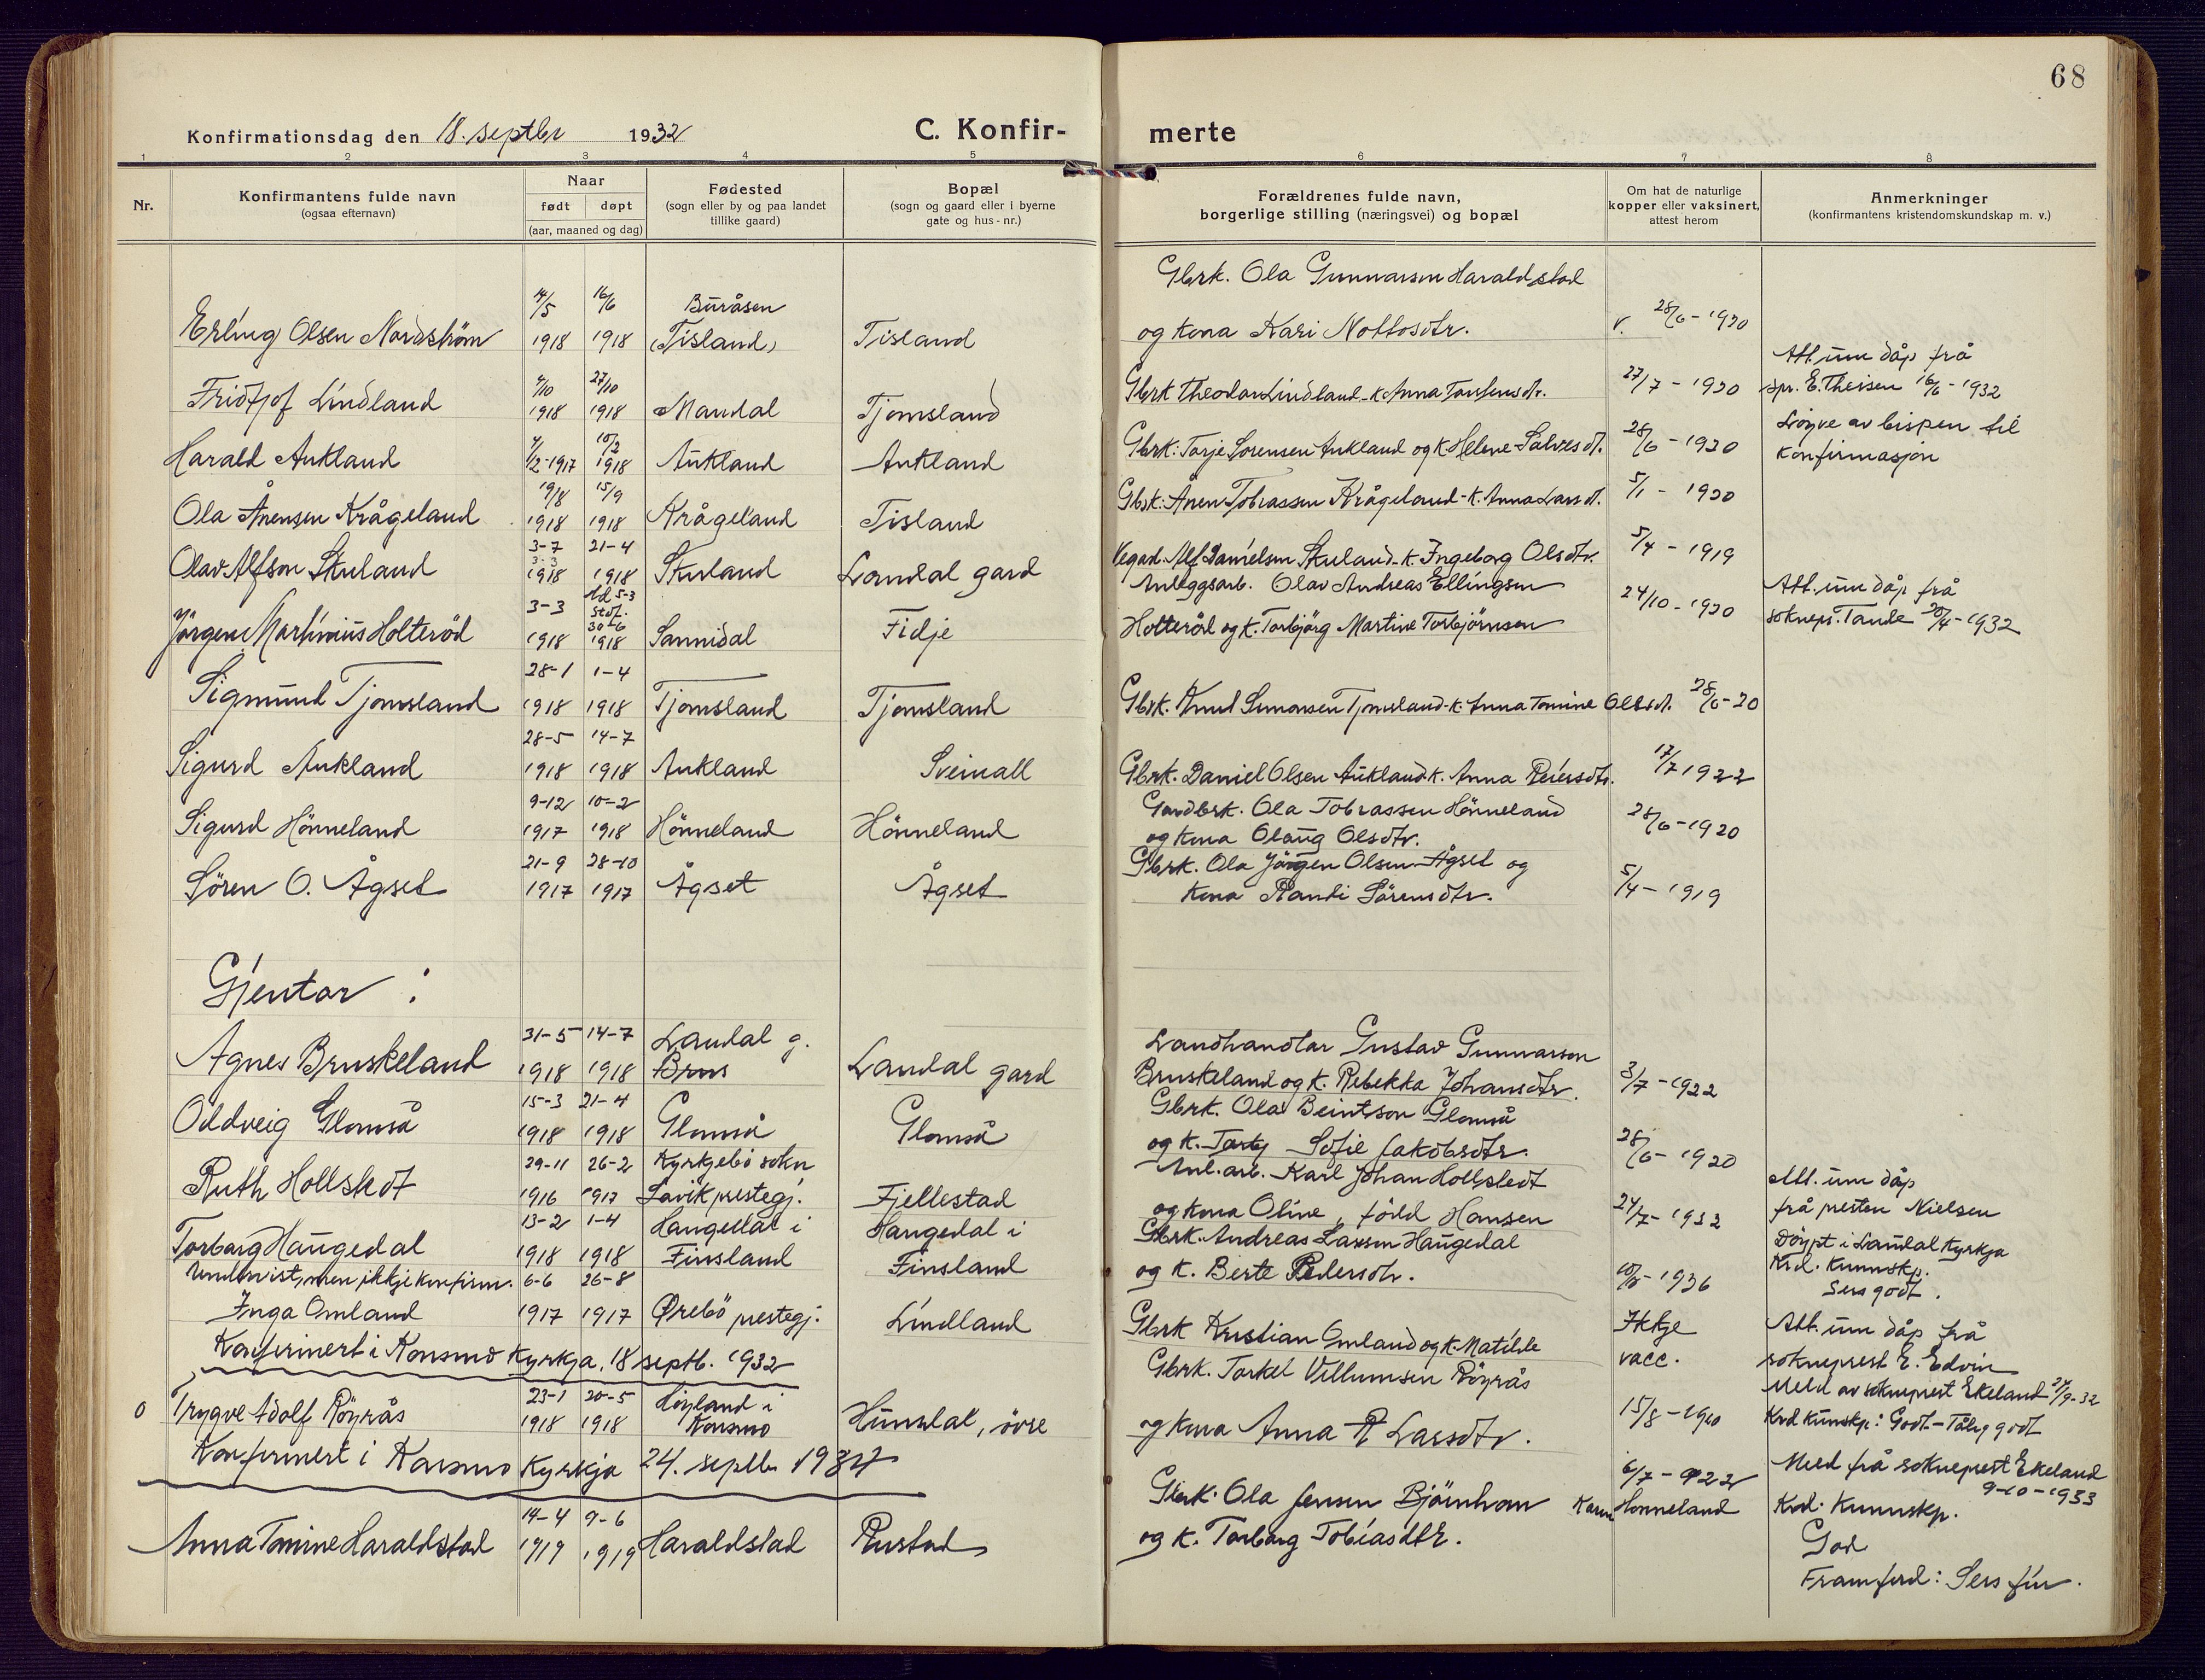 68
Konfirmationsdag den 18. septbr 1932
C. Konfir-
merte
1 2 3 4 5 6 7 8
Nr.
Konfirmantens fulde navn
(ogsaa efternavn)
Naar
født døpt
(aar, maaned og dag)
Fødested
(sogn eller by og paa landet
tillike gaard)
Bopæl
(sogn og gaard eller i byerne
gate og hus-nr.)
Forældrenes fulde navn,
borgerlige stilling (næringsvei) og bopæl
Om hat de naturlige
kopper eller vaksinert,
attest herom
Anmerkninger
(konfirmantens kristendomskundskap m. v.)
14/5 16/6 Buråsen Gbrk. Ola Gunnarsen Haraldstad
Erling Olsen Nordström 1918 1918 (Tisland) Tisland og kona Kari Nottosdtr. v. 28/6 - 1920
27/10 Att. um dåp frå
Fridtjof Lindland 1918 1918 Mandal Tjomsland Gbrk Theodor Lindland - k. Anna 27/7 - 1920 spr. E. Theisen 16/6 - 1932
10/2 Löyve av bispen til
Harald Aukland 1917 1918 Aukland Aukland Gbrk: Torje Sorensen Aukland og k Helene Salvesdt. 28/6 - 1920 konfirmasjon
19/8 15/9
Ola Ånensen Krågeland 1918 1918 Krågeland Tisland Gbrk: Ånen Tobiassen Krågeland - k. Anna Larsdt. 5/1 - 1920
3-7 21-4
3-3
Olav Alfson Skuland 1918 1918 Skuland Laudal gard Vegarb. Alf Danielsen Skuland - k. Ingeborg Olsdtr. 5/4 - 1919
3-3 5-3 30-6 Anleggsarb. Olav Andreas Ellingsen Att. um dåp frå
Jörgen Martinius Holteröd 1918 1918 Sannidal Fidje Holteröd og k. Torbjörg Martine Torbjörnsen 24/10 - 1920 soknepr. Tande 20/4 - 1932
28-1 1-4
Sigmund Tjomsland 1918 1918 Tjomsland Tjomsland Gbrk. Knut Simonsen Tjomsland - k. Anna Tomine Olsdt. 28/6 - 20
28-5 14-7
Sigurd Aukland 1918 1918 Aukland Sveinall Gbrk. Daniel Olsen Aukland k. Anna Reiersdtr. 17/7 1922
9-12 10-2 Gardbrk. Ola Tobiassen Hönneland
Sigurd Hönneland 1917 1918 Hönneland Hönneland og kona Olaug Olsdtr. 28/6 - 1920
21-9 28-10 Gbrk. Ola Jörgen Olsen Ågset og
Sören O. Ågset 1917 1917 Ågset Ågset kona Randi Sörensdtr. 5/4 - 1919
Gjentor :
31-5 14-7 Laudal g. Landhandlar Gustav Gunnarson
Agnes Bruskeland 1918 1918 Brus Laudal gard Bruskeland og k. Rebekka Johansdtr. 3/7 - 1922
15-3 21-4 Gbrk. Ola Beintson Glomså
Oddveig Glomså 1918 1918 Glomså Glomså og k. Torbj Sofie Jakobsdtr. 28/6 - 1920
29-11 26-2 Kyrkjebö sokn Anl. arb. Karl Johan Hollstedt Att. um dåp
Ruth Hollstedt 1916 1917 Lavik prestegj. Fjellestad og kona Oline, född Hansen 24/7 - 1932 frå presten Nielsen
13-2 1-4 Haugedal i Haugedal i Gbrk. Andreas Larsen Haugedal Döypt i Laudal kyrkja
Torborg Haugedal 1918 1918 Finsland Finsland og k. Berte Pedersdtr. 1936 Krd. kunnskp.
Sers godt.
Undervist, men ikkje konfirm. 6-6 26-8
Inga Omland 1917 1917 Ørebö prestegj. Lindland Gbrk Kristian Omland og k. Matilde Ikkje vacc. Att. um dåp frå
sokneprest E. Edvin
Konfirmert i Konsmo kyrkja, 18 septb. 1932
23-1 20-5 Höyland i Gbrk. Torkel Villumsen Röyrås Meld av sokneprest Ekeland 24/9-32
o Trygve Adolf Röyrås 1918 1918 Konsmo Hunsdal, övre og kona Anna R Larsdtr. 15/8 - 1920 Krd kunskp: Godt - Tåleg godt
Konfirmert i Konsmo kyrkja 24. septb.
14-4 9-6 Gbrk. Ola Jensen Björnhom 6/7 - 922 Meld frå sokneprest Ekeland
9-10-1933
Anna Tomine Haraldstad 1919 1919 Haraldstad Rustad og k. Torborg Tobiasdtr. Honneland Krd. kunnskp.
God
Framferd: Sers fin.